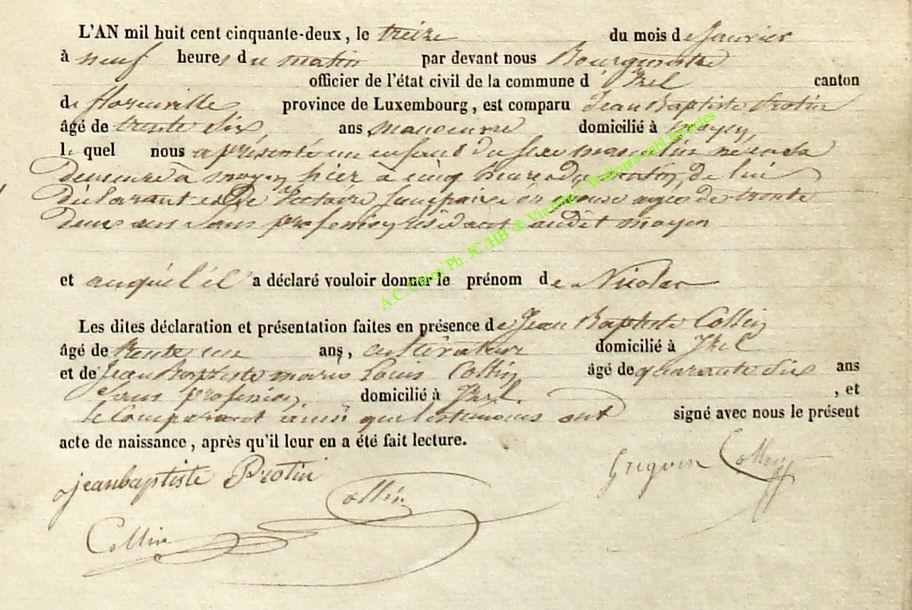 L'AN mil huit cent cinquante-deux, le treize du mois de Janvier
à neuf heures du matin par devant nous Bourgmestre
officier de l'état civil de la commune d'Izel canton
de florenville province de Luxembourg, est comparu Jean Baptiste Protin
âgé de trente six ans manoeuvre domicilié à moyen
le quel nous a présenté un enfant du sexe masculin né en sa
demeure à moyen hier à cinq heures du matin de lui
déclarant et de Victoire son épouse agée de trente
deux ans sans profession résidant audit moyen
et auquel il a déclaré vouloir donner le prénom de Nicolas
Les dites déclaration et présentation faites en présence de Jean Baptiste Collin
âgé de trente un ans, cultivateur domicilié à Izel
et de Jean Baptiste marie Louis Collin âgé de quarante six ans
sans profession domicilié à Izel. , et
le comparant ainsi que les témoins ont signé avec nous le présent
acte de naissance, après qu'il leur en a été fait lecture.
jeanbaptiste Protin
Collin
Collin